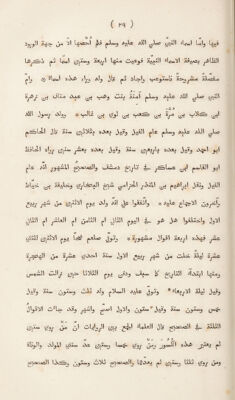 ( ٢٩ )
فيها وامّا اسماء النبيّ صلي الله عليه وسلم فلم أُحْصِها اذ من جهة الورود
الظاهر بصيغة الاسماء النبيّة فوعيت منها اربعة وستّين اسما ثم ذكرها
مفصّلة مشروحة فاستوعب واجاد ثم قال وله وراء هذه اسماء وامّ
النبيّ صلي الله عليه وسلم آمنةُ بنت وهب بن عبد مناف بن زهرة
ابن كلاب بن مُرّة بن كعب بن لوي بن غالب وولد رسول الله
صلي الله عليه وسلم عام الفيل وقيل بعده بثلاثين سنة قال الحاكم
ابو احمد وقيل بعده باربعين سنة وقيل بعده بعشر سنين رواه الحافظ
ابو القاسم ابن عساكر في تاريخ دمشق والصحيح المشهور انّه عام
الفيل ونقل ابراهيم بن المنذر الحزامي شيخ البخاري وخليفة بن خيّاط
وآخرون الاجماع عليه واتّفقوا علي انّه ولد يوم الاثنين من شهر ربيع
الاول واختلفوا هل هو في اليوم الثاني ام الثامن ام العاشر ام الثاني
عشر فهذه اربعة اقوال مشهورة وتوفّي صلعم ضحًا يوم الاثنين لثنتي
عشرة ليلة خلت من شهر ربيع الاول سنة احدي عشرة من الهجرة
ومنها ابتدئ التاريخ كما سبق ودفن يوم الثلثا حين زالت الشمس
وقيل ليلة الاربعاء وتوفّي عليه السلام وله ثلث وستون سنة وقيل
خمس وستون سنة وقيل ستّون والاول اصحّ واشهر وقد جاءت الاقوال
الثلثة في الصحيح قال العلماء الجمع بين الروايات انّ مَنْ روي ستين
لم يعتبر هذه الكسور ومَنْ روي خمسا وستين عدّ سنتي المولد والوفاة
ومن روي ثلثا وستين لم يعدّهما والصحيح ثلاث وستون وكذا الصحيح